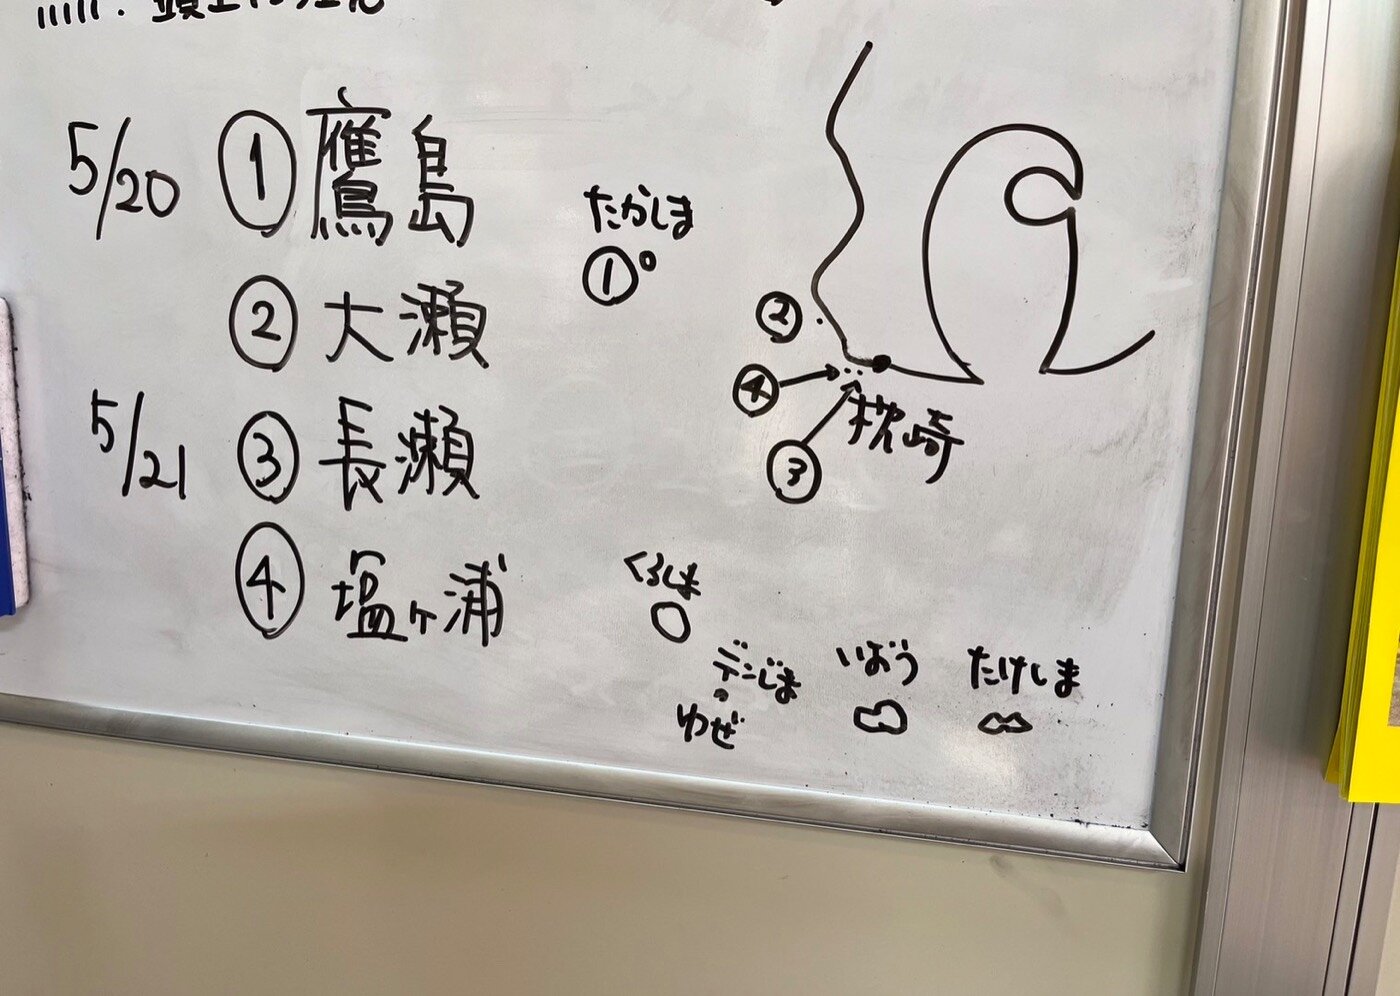 5/20 ① 鷹島
② 大瀬
5/21 ③ 長瀬
④ 塩ヶ浦
たかしま
①
②
④
③
枕崎
くろしま
デンじま
ゆぜ
いおう
たけしま